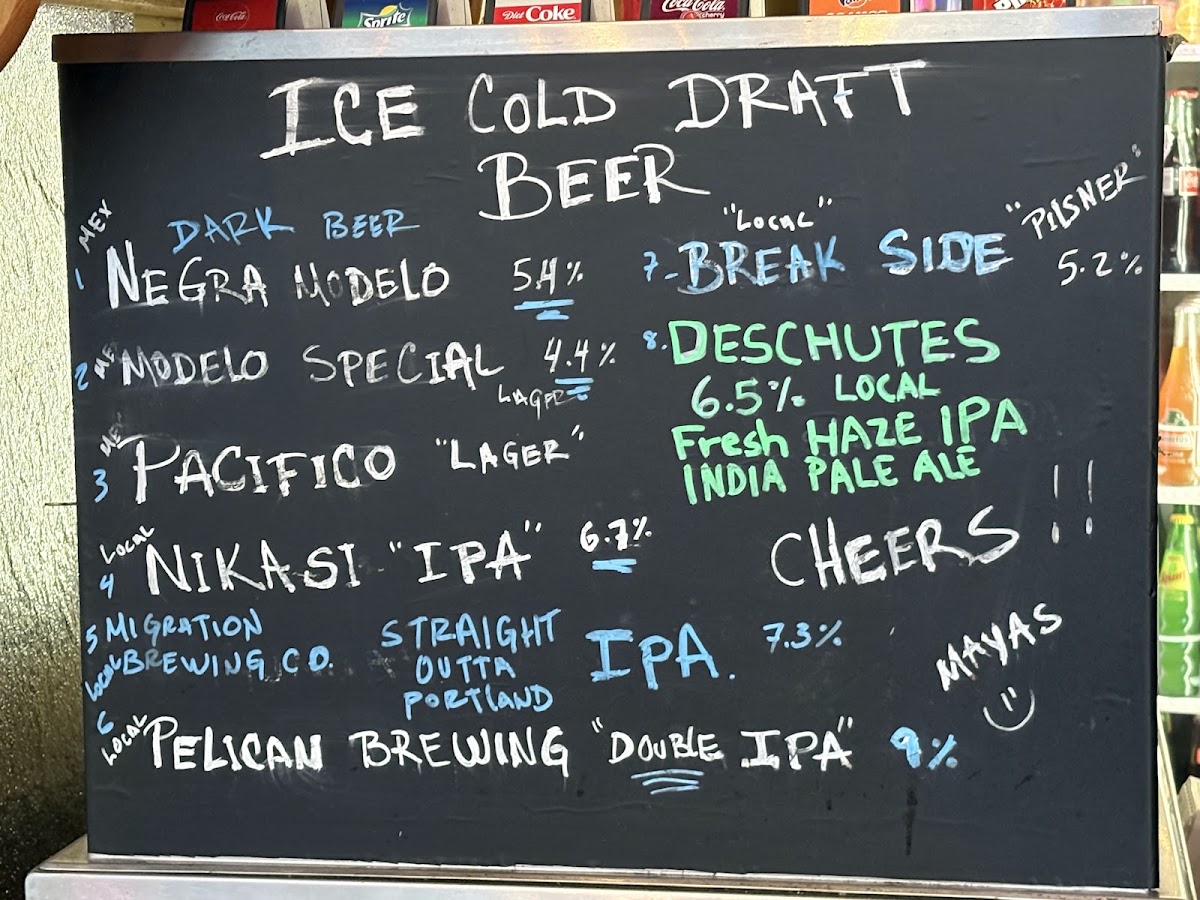 Coca-Cola
Sprite
Diet Coke
Coca-Cola
cherry
ICE COLD DRAFT
BEER
MEX
DARK BEER
1 NEGRA MODELO 5.4%
2 MODELO SPECIAL 4.4%
LAGER
3 PACIFICO "LAGER"
LOCAL
4 NIKASI "IPA" 6.7%
5 MIGRATION STRAIGHT IPA. 7.3%
LOCAL BREWING CO. OUTTA
PORTLAND
6 LOCAL PELICAN BREWING "DOUBLE IPA" 9%
"LOCAL" "PILSNER"
7- BREAK SIDE 5.2%
8. DESCHUTES
6.5% LOCAL
Fresh HAZE IPA
INDIA PALE ALE
CHEERS!!
MAYAS